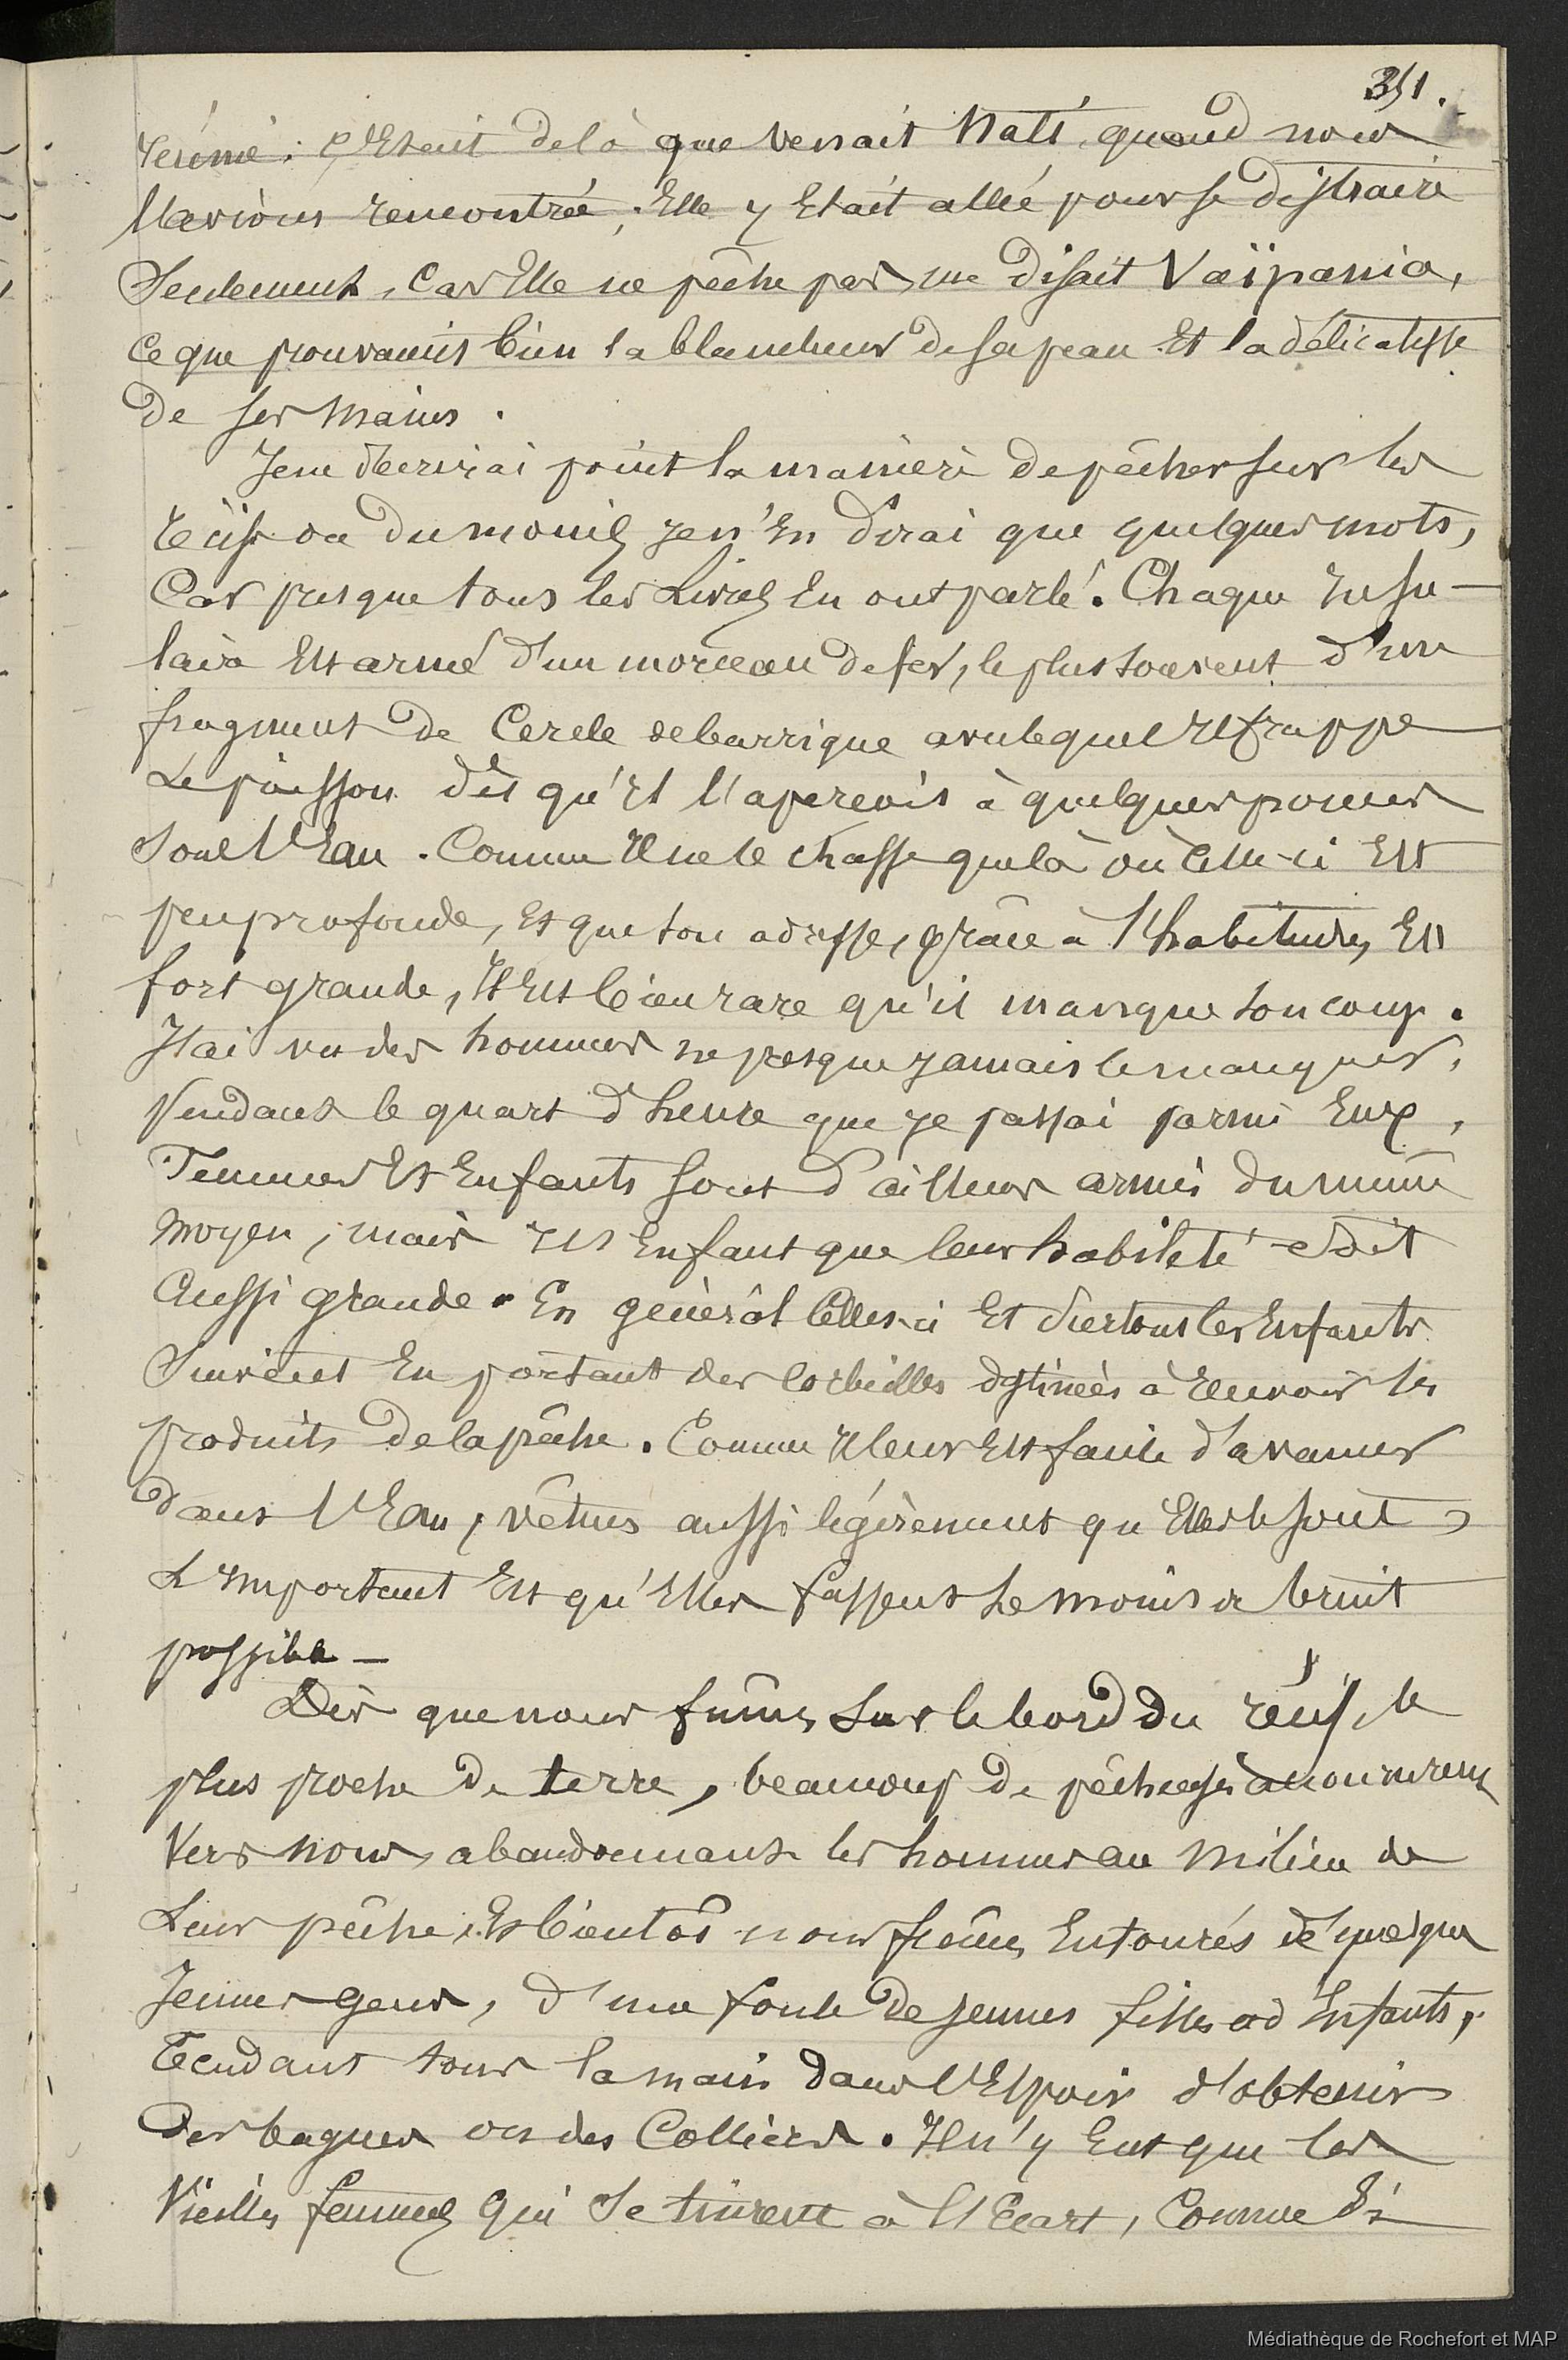 351.
C'Etait de là que venait Nati, quand nous
l'avions rencontrée ; Elle y Etait allée pour se distraire
Seulement, Car Elle ne pêche pas, me disait Vaïpania,
Ce que prouvaient bien la blancheur de sa peau Et la délicatesse
de ses mains.
Je ne décrirai point la manière de pêcher sur les
récifs ou du moins je n'En dirai que quelques mots,
Car presque tous les Livres En ont parlé. Chaque Insu-
laire Est armé d'un morceau de fer, le plus souvent d'un
fragment de Cercle de barrique avec lequel Il frappe
Le poisson dès qu'Il l'aperçoit à quelques pouces
Sous l'Eau. Comme Il ne le chasse que là où Celle-ci Est
peu profonde, Et que son adresse, grâce à l'habitude, Est
fort grande, Il Est bien rare qu'il manque son coup.
J'ai vu des hommes ne presque jamais le manquer,
Pendant le quart d'heure que je passai parmi Eux,
Femmes Et Enfants sont d'ailleurs armés du même
moyen, mais Il s'En faut que leur habileté soit
Aussi grande. En général Celles-ci Et surtout les Enfants
Suivent En portant des Corbeilles destinées à recevoir les
produits de la pêche. Comme Il leur Est facile d'avancer
dans l'Eau, vêtues aussi légèrement qu'Elles le sont,
L'Important Est qu'Elles fassent Le moins de bruit
possible —
Dès que nous fûmes sur le bord du récif, le
plus proche de terre, beaucoup de pêcheuses accoururent
Vers nous, abandonnant les hommes au milieu de
Leur pêche, Et bientôt nous fûmes Entourés de quelques
Jeunes gens, d'une foule de jeunes filles et d'Enfants,
Tendant tous la main dans l'Espoir d'obtenir
Des bagues ou des Colliers. Il n'y Eut que les
Vieilles femmes qui se tinrent à l'Ecart, Comme si
Médiathèque de Rochefort et MAP